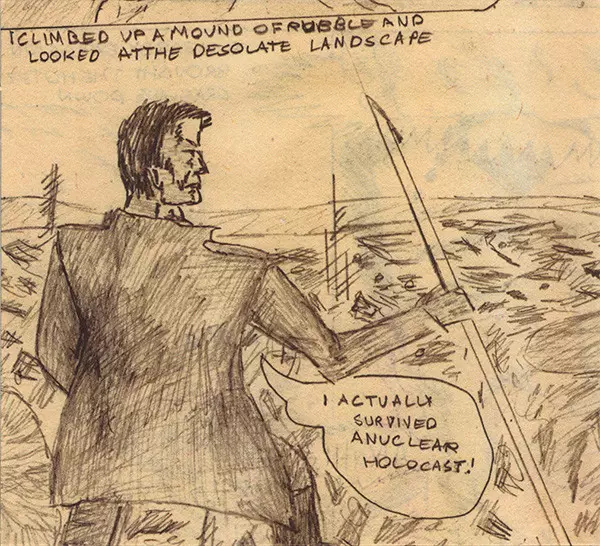 I CLIMBED UP A MOUND OF RUBBLE AND
LOOKED AT THE DESOLATE LANDSCAPE
I ACTUALLY
SURVIVED
A NUCLEAR
HOLOCAST!